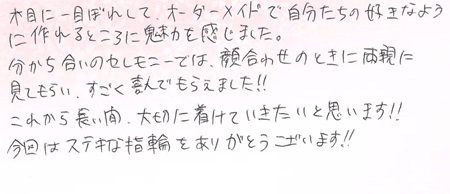 木目に一目ぼれして、オーダーメイドで自分たちの好きなよう
に作れるところに魅力を感じました。
分かち合いのセレモニーでは、顔合わせのときに両親に
見てもらい、すごく喜んでもらえました!!
これから長い間、大切に着けていきたいと思います!!
今回はステキな指輪をありがとうございます!!